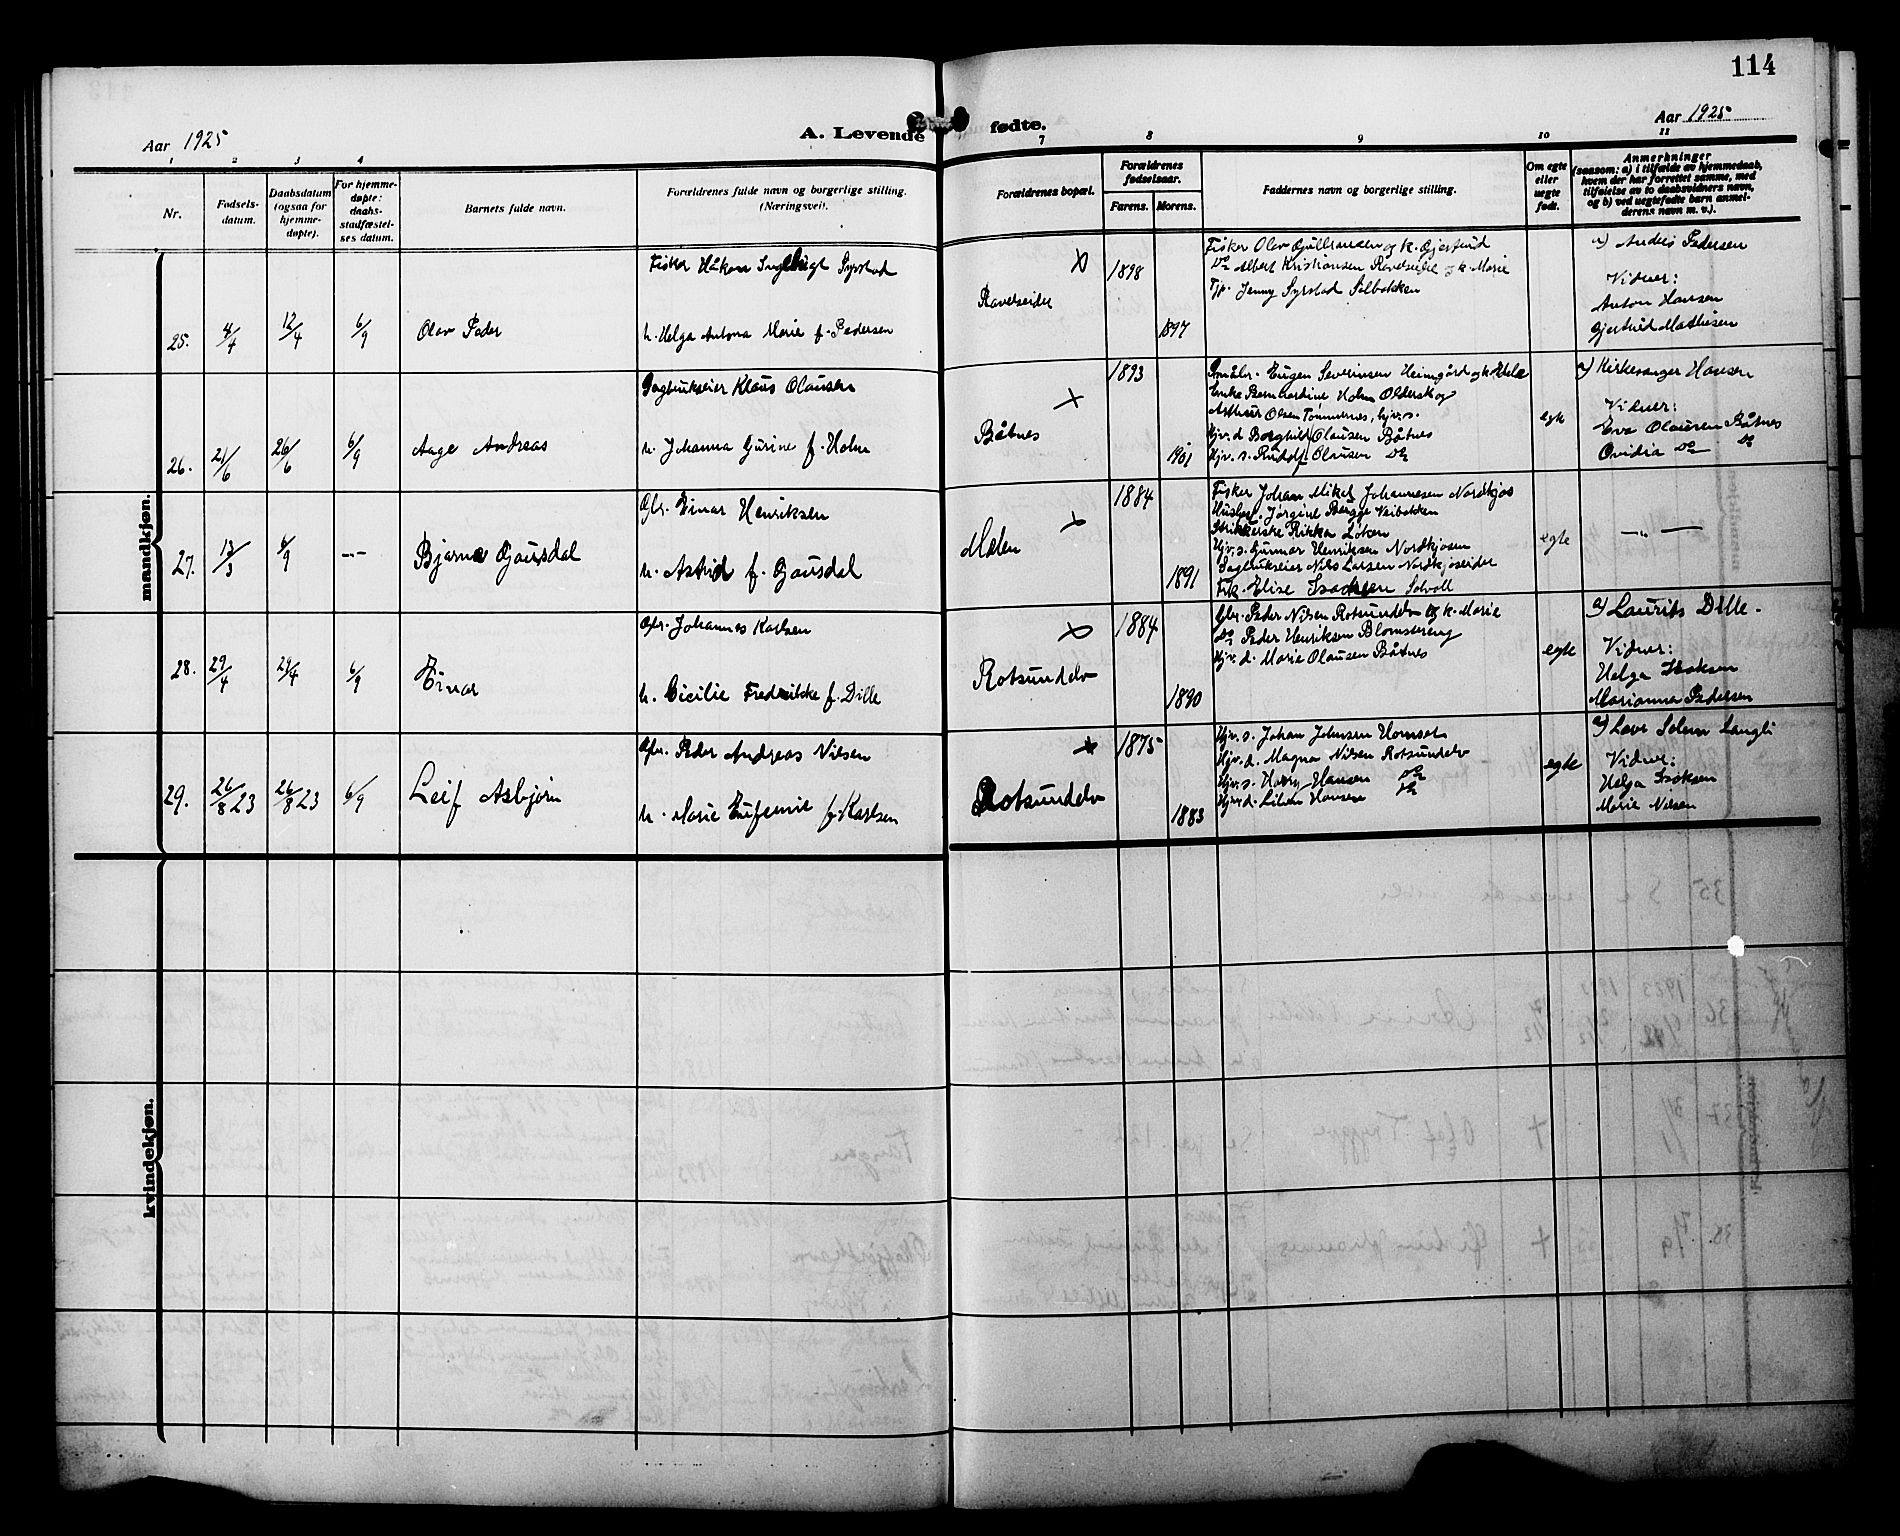 114
Aar 1925
A. Levende fødte.
Aar 1925
1 2 3 4 7 8 9 10 11
Nr.
Fødsels-
datum.
Daabsdatum
(ogsaa for
hjemme-
døpte).
For hjemme-
døpte:
daabs-
stadfæstel-
ses datum.
Barnets fulde navn.
Forældrenes fulde navn og borgerlige stilling.
(Næringsvei).
Forældrenes bopæl.
Forældrenes
fødselsaar.
Farens. Morens.
Faddernes navn og borgerlige stilling.
Om egte
eller
uegte
født.
Anmerkninger
(saasom: a) i tilfælde av hjemmedaab,
hvem der har forrettet samme, med
tilføielse av to daabsvidners navn,
og b) ved uegtefødte barn anmel-
derens navn m. v.).
mandkjøn.
25. 4/4 12/4 6/9 Olav Peder
Fisker Håkon Syrstad
h. Helga Antona Marie f. Pedersen
Ravelseidet
1898
1897
Fisker Olav Gulbransen og k. Gjertrud
Do Albert Kristiansen Ravelseidet og k. Marie
Tjp. Jenny Syrstad Solbakken
a) Anders Pedersen
Vidner:
Anton Hansen
Gjertrud Mathisen
26. 21/6 26/6 6/9 Aage Andreas
Sagbrukseier Klaus Olausen
h. Johanna Gurine f. Holm
Båtnes
1893
1901
Eugen Severinsen Heimgård og k.
Enke Bernhardine Holm Olderskog
Arthur Olsen Tømmernes, hjv. s.
Hjv. d. Borghild Olausen Båtnes
Hjv. s. Rudolf Olausen Do
egte
a) Kirkesanger Hansen
Vidner:
Eva Olausen Båtnes
Ovidia Do Do
27. 13/3 6/9 - - - Bjarne Gausdal
Gbr. Einar Henriksen
h. Astrid f. Gausdal
Molen
1884
1891
Fisker Johan Mikal Johannesen Nordkjos
Jørgine Berger Neibakken
Strikkerske Rikka Løken
Hjv. s. Gunnar Henriksen Nordkjosen
Sagbrukseier Nils Larsen Nordkjoseidet
Frk. Elise Isachsen Solvoll
egte
— „ —
28. 29/4 29/4 6/9 Einar
Gbr. Johannes Karlsen
h. Cicilie Fredrikke f. Dille
Rotsundelv
1884
1890
Gbr. Peder Nilsen Rotsundelv og k. Marie
Do Peder Henriksen Blomstereng
Hjv. d. Marie Olausen Båtnes
egte
a) Laurits Dille.
Vidner:
Helga Isaksen
Marianna Pedersen
29. 26/8 23 26/8 23 6/9 Leif Asbjørn
Gbr. Peder Andreas Nilsen
h. Marie Eufemie f. Karlsen
Rotsundelv
1875
1883
Hjv. s. Johan Johnsen Hamset
Hjv. d. Magna Nilsen Rotsundelv
Hjv. s. Harry Hansen Do
Hjv. d. Lilian Hansen Do
egte
a) Lars Solem Langli
Vidner:
Helga Isaksen
Marie Nilsen
kvindekjøn.